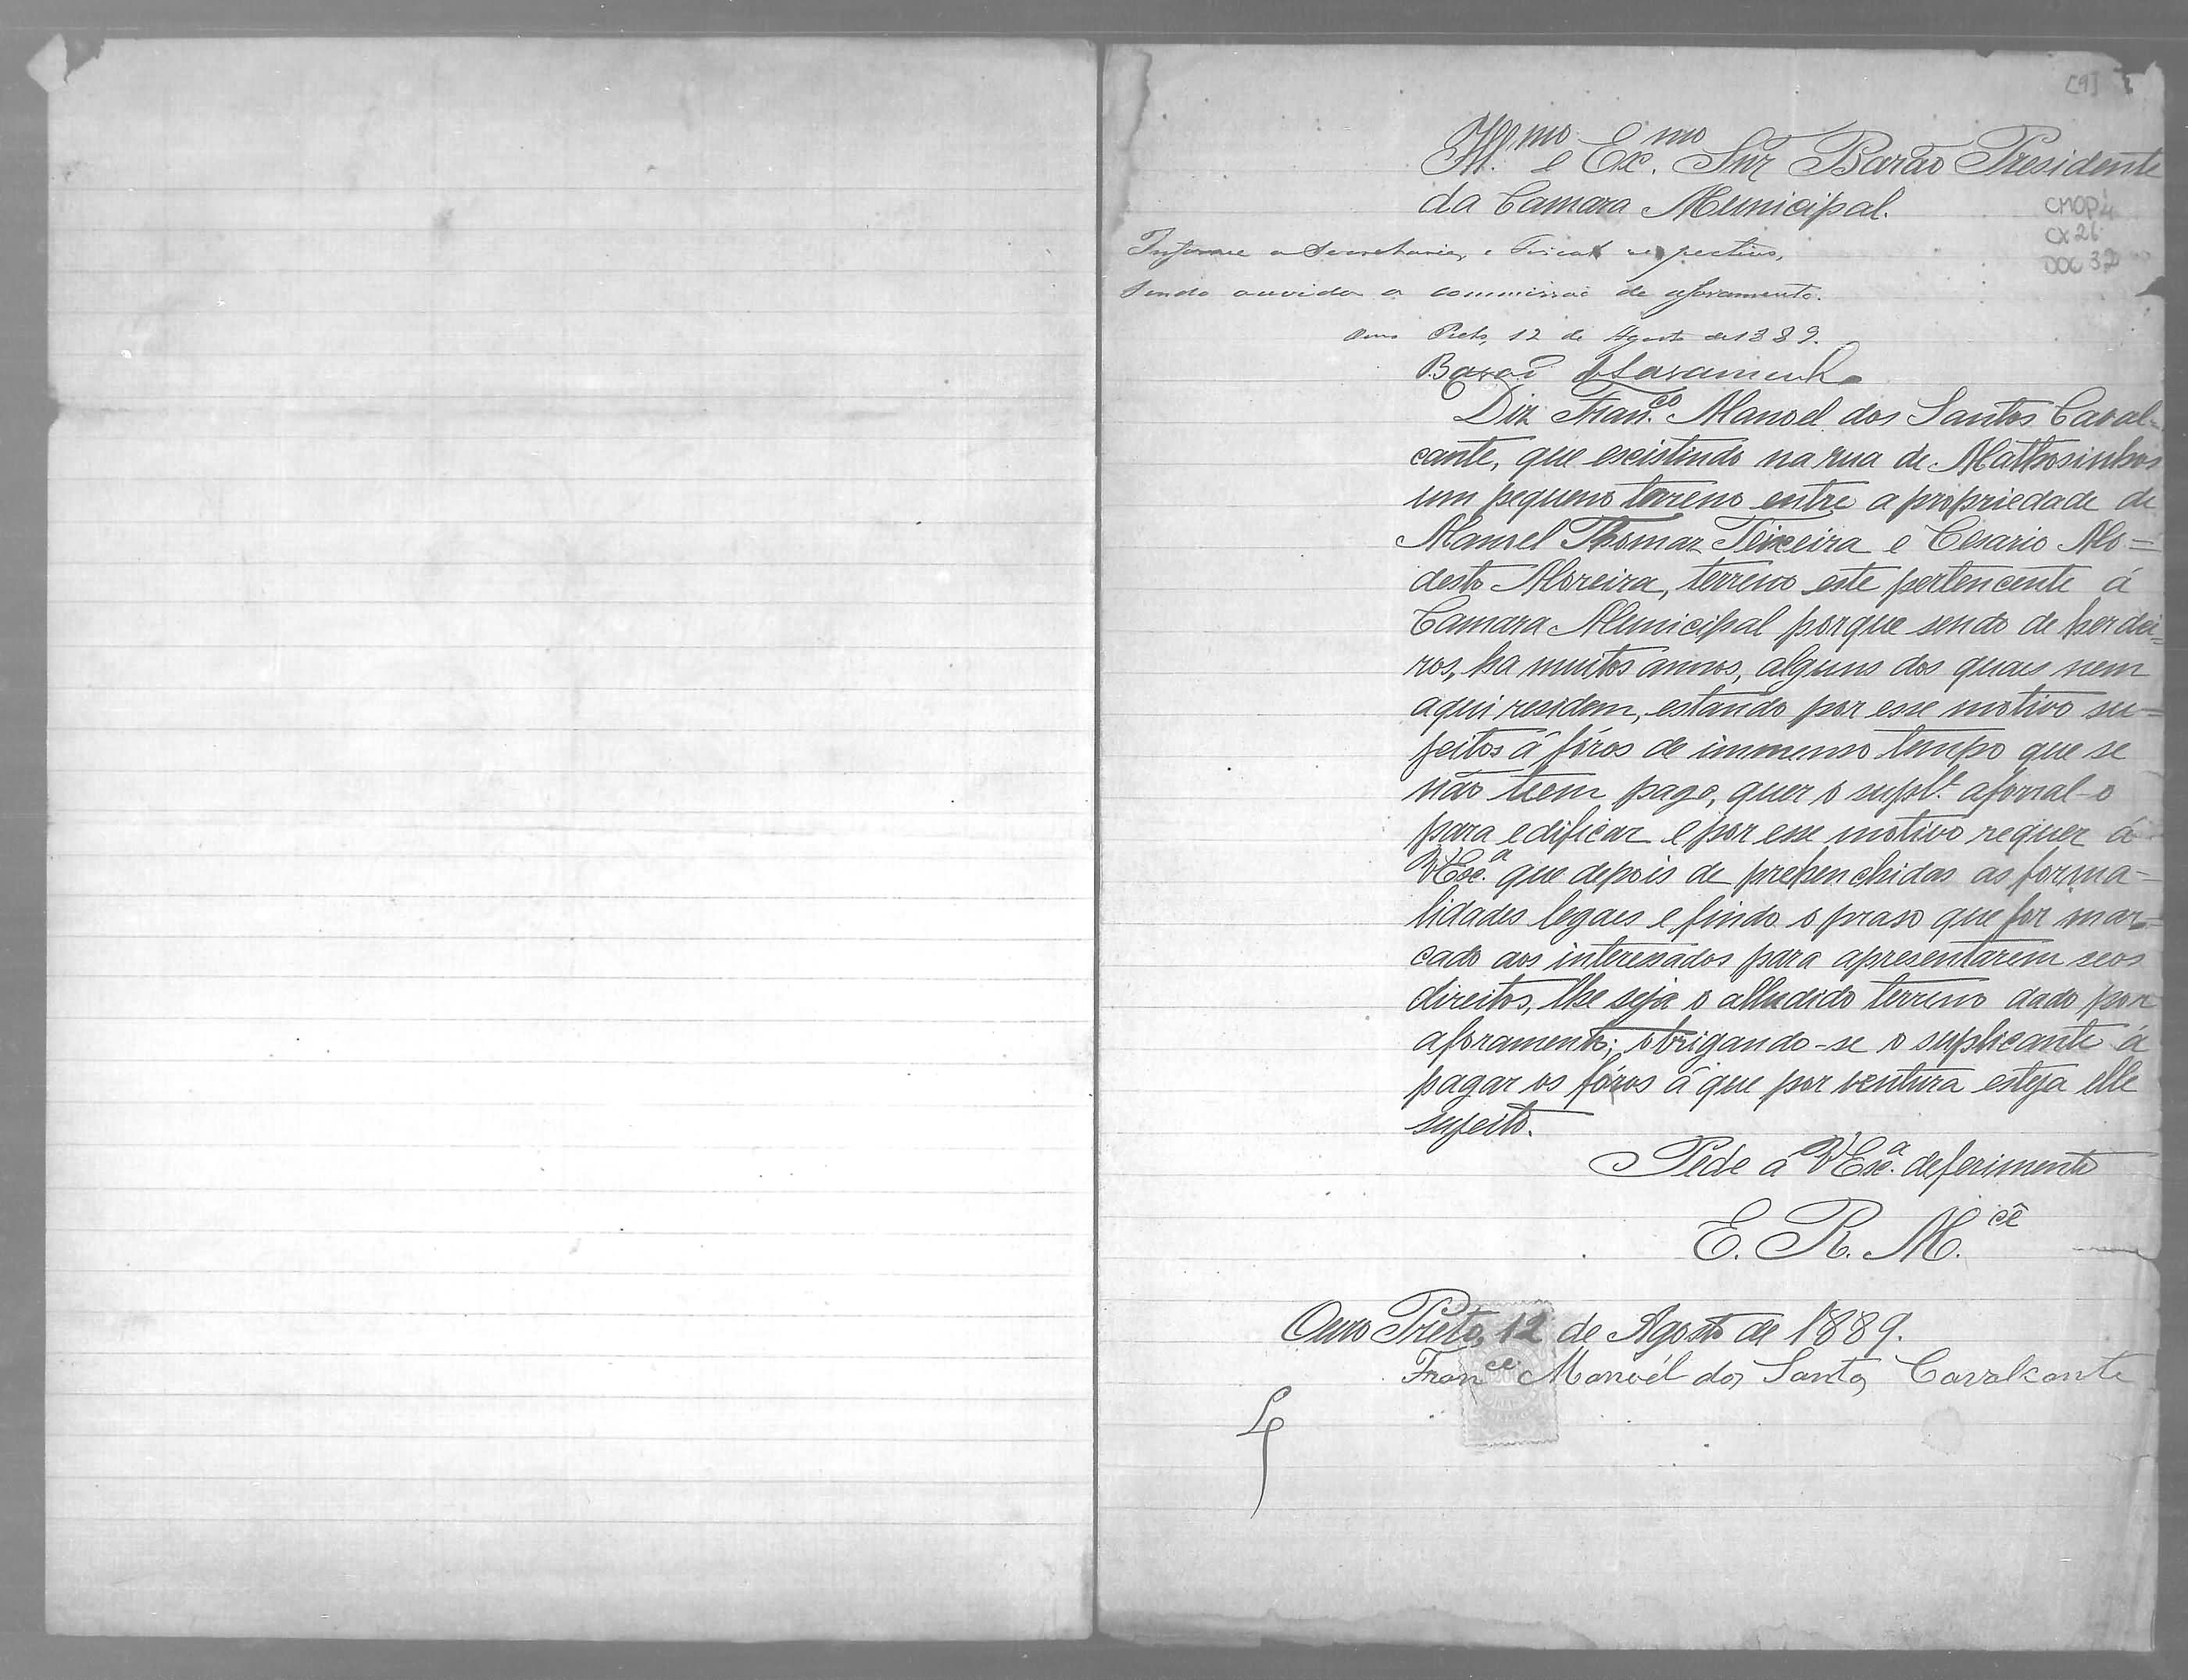 [9] 1
Ill.mo e Ex.mo Snr Barão Presidente
da Camara Municipal.
CMOP 4
CX 26
DOC 32
Informe a Secretaria, e Fiscal respectivo,
sendo ouvida a commissaõ de aforamento.
Ouro Preto, 12 de Agosto de 1889.
Baraõ de Saramenha
Diz Fran.co Manoel dos Santos Caval-
cante, que existindo na rua de Mathosinhos
um pequeno terreno entre a propriedade de
Manoel Thomaz Teixeira e Cesario Mo=
desto Moreira, terreno este pertencente á
Camara Municipal porque sendo de herdei=
ros, ha muitos annos, alguns dos quaes nem
aqui residem, estando por esse motivo su=
jeitos á fóros de immenso tempo que se
não teem pago, quer o supl.e aforal-o
para edificar e por esse motivo requer á
VExc.a que depois de prehenchidas as forma=
lidades legaes e findo o praso que for mar=
cado aos interessados para apresentarem seos
direitos, lhe seja o alludido terreno dado por
aforamento; obrigando-se o suplicante á
pagar os fóros á que por ventura esteja elle
sujeito.
Pede á VExc.a deferimento
E. R. M.cê
Ouro Preto, 12 de Agosto de 1889.
Fran.co Manoél dos Santos Cavalcante